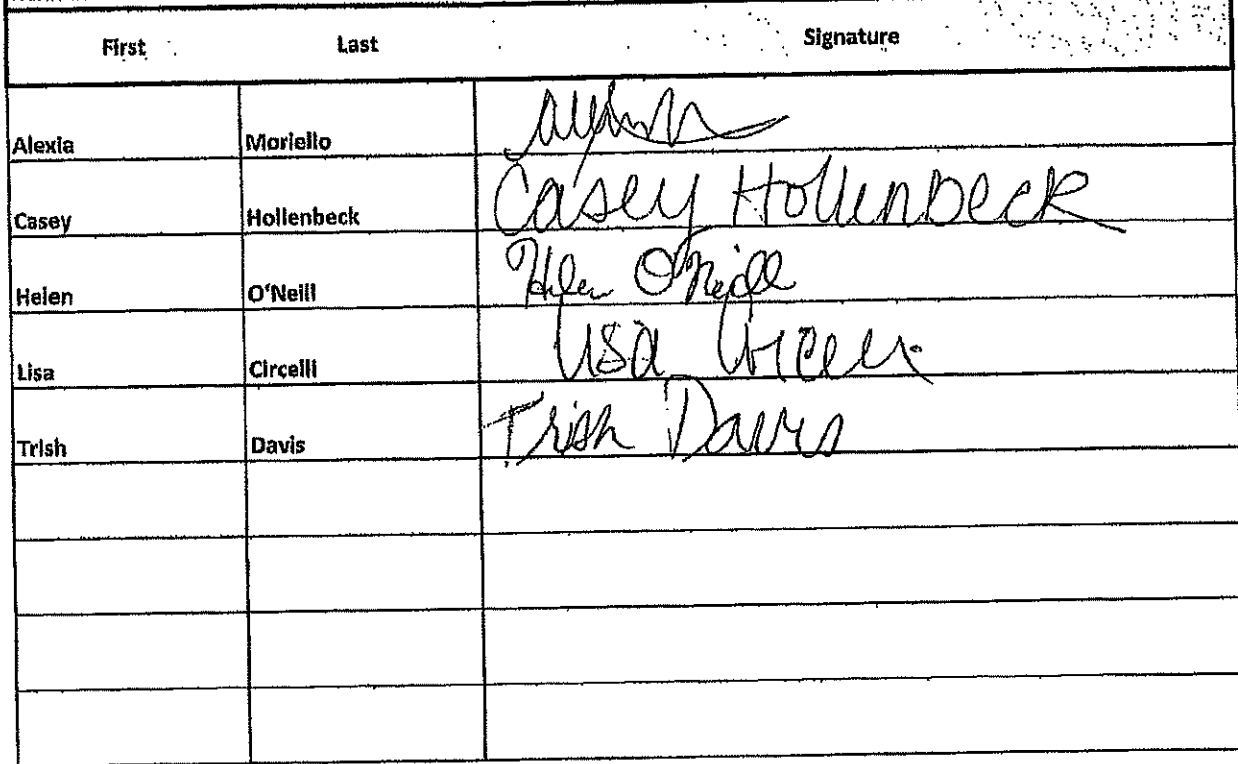 First Last Signature
Alexia Moriello
Casey Hollenbeck Casey Hollenbeck
Helen O'Neill Helen O'Neill
Lisa Circelli Lisa
Trish Davis Trish Davis